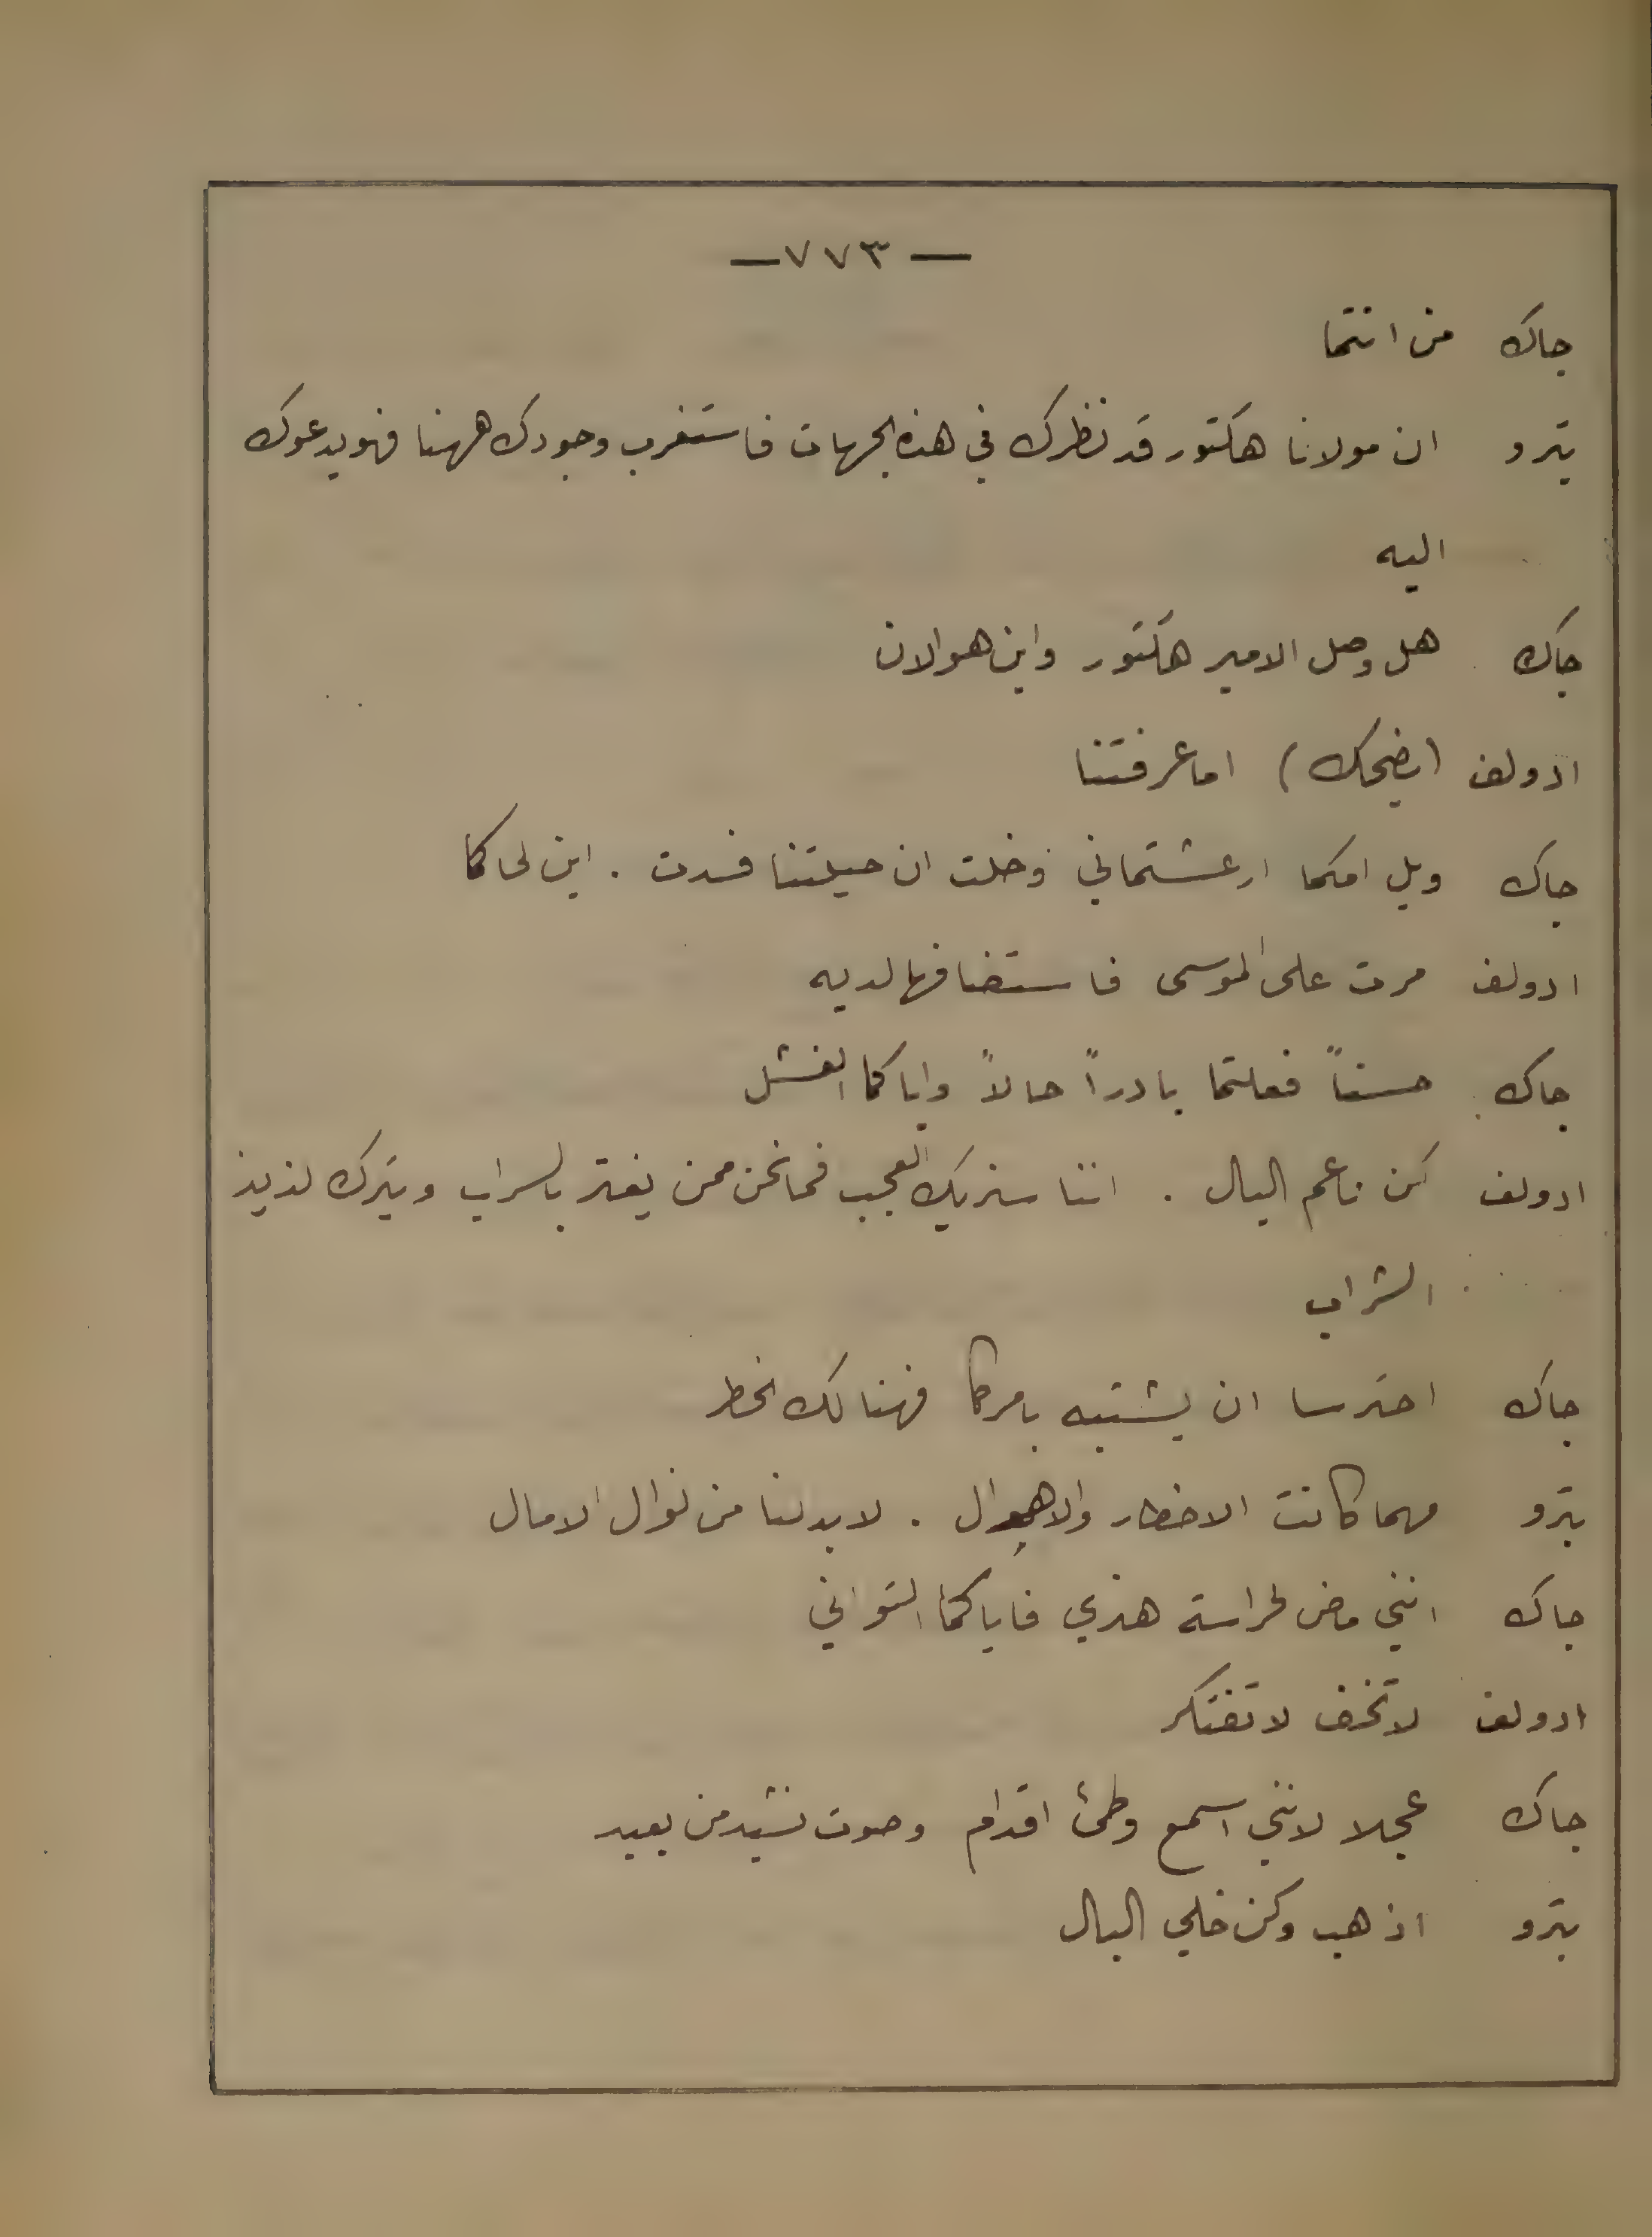 — ٧٧٣ —
جاك من انتما
بترو ان مولانا هكتور قد نظرك في هذه الجهات فاستغرب وجودك ههنا فهو يدعوك
اليه
جاك هل وصل الامير هكتور واين هو الان
ادولف (يضحك) اما عرفتنا
جاك ويل امكما ارعشتماني وخلت ان حيلتنا فسدت . اين لحاكما
ادولف مرت على الموسى فاستضافها لديه
جاك حسناً فعلتما بادراً حالاً واياكما الفشل
ادولف كن ناعم البال . اننا سنريك العجب فما نحن ممن يغتر بالسراب ويترك لذيذ
الشراب
جاك احترسا ان يشتبه بامركما فهنالك الخطر
بترو مهما كانت الاخطار والاهوال . لا بد لنا من نوال الامال
جاك انني ماض لحراسة هنري فاياكما التواني
ادولف لا تخف لا تفتكر
جاك عجلا لانني اسمع وطئ اقدام وصوت نشيد من بعيد
بترو اذهب وكن خلي البال